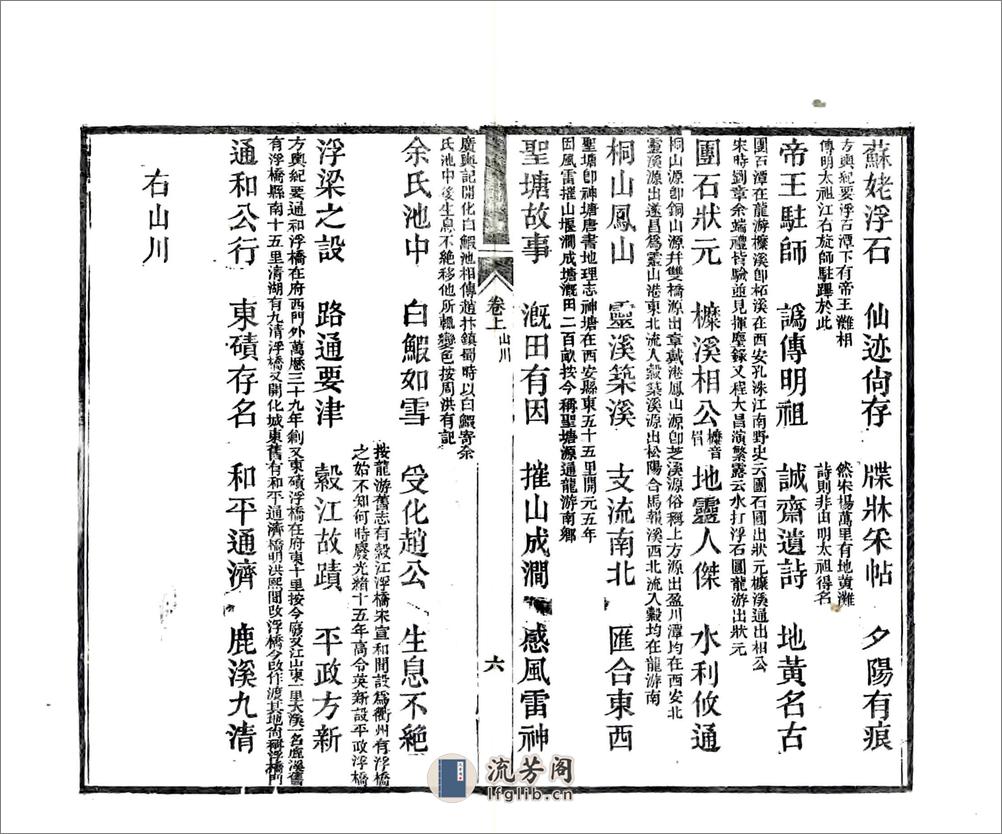 蘇姥浮石 仙迹尙存 牒牀釆帖 夕陽有痕
方輿紀要浮石潭下有帝王灘相
傳明太祖江右旋師駐蹕於此
然宋楊萬里有地黄灘
詩則非由明太祖得名
帝王駐師 譌傳明祖 誠齋遺詩 地黃名古
團石潭在龍游㯶溪卽柘溪在西安孔洙江南野史云團石圓出狀元㯶溪通出相公
宋時劉章余端禮皆驗並見揮麈錄又程大昌演繁露云水打浮石圓龍游出狀元
團石狀元 㯶溪相公 㯶音 地靈人傑 水利攸通
桐山源卽銅山源幷雙橋源出章戴港鳳山源卽芝溪源俗稱上方源出盈川潭均在西安北
靈溪源出遂昌爲靈山港東北流入縠築溪源出松陽合馬報溪西北流入縠均在龍游南
桐山鳳山 靈溪築溪 支流南北 匯合東西
聖塘卽神塘唐書地理志神塘在西安縣東五十五里開元五年
因風雷摧山堰澗成塘漑田二百畝按今稱聖塘源通龍游南鄉
聖塘故事 漑田有因 摧山成澗 感風雷神
卷上 山川
六
廣輿記開化白鰕池相傳趙抃鎭蜀時以白鰕寄余
氏池中後生息不絕移他所輒變色按周洪有記
余氏池中 白鰕如雪 受化趙公 生息不絕
按龍游舊志有縠江浮橋宋宣和間設爲衢州有浮橋
之始不知何時廢光緖十五年高令英新設平政浮橋
浮梁之設 路通要津 縠江故蹟 平政方新
方輿紀要通和浮橋在府西門外萬厯三十九年剏又東磧浮橋在府東十里按今廢又江山東一里大溪一名鹿溪舊
有浮橋縣南十五里清湖有九清浮橋又開化城東舊有和平通濟橋明洪熙間改浮橋今改作渡其地尙稱浮橋門
通和公行 東磧存名 和平通濟 鹿溪九清
右山川
流芳阁
lfglib.cn